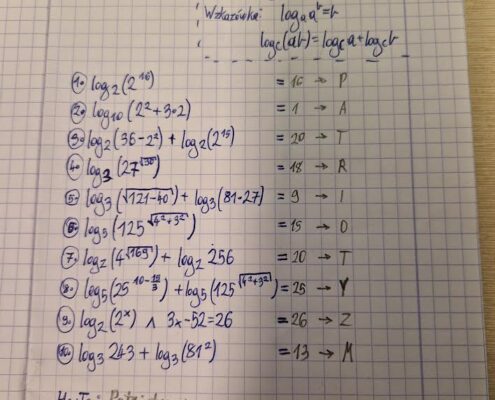 Wskazówka: logₐ aᵗ = t
log_c(a t) = log_c a + log_c t
1. log₂(2¹⁶) = 16 → P
2. log₁₀(2² + 3·2) = 1 → A
3. log₂(36 - 2²) + log₂(2¹⁵) = 20 → T
4. log₃(27^√36) = 18 → R
5. log₃(√(121-40)) + log₃(81·27) = 9 → I
6. log₅(125^√(4²+3²)) = 15 → O
7. log₂(4^√169) + log₂ 256 = 20 → T
8. log₅(25^(10-15/3)) + log₅(125^√(4²+3²)) = 25 → Y
9. log₂(2ˣ) ∧ 3x-52=26 = 26 → Z
10. log₃ 243 + log₃(81²) = 13 → M